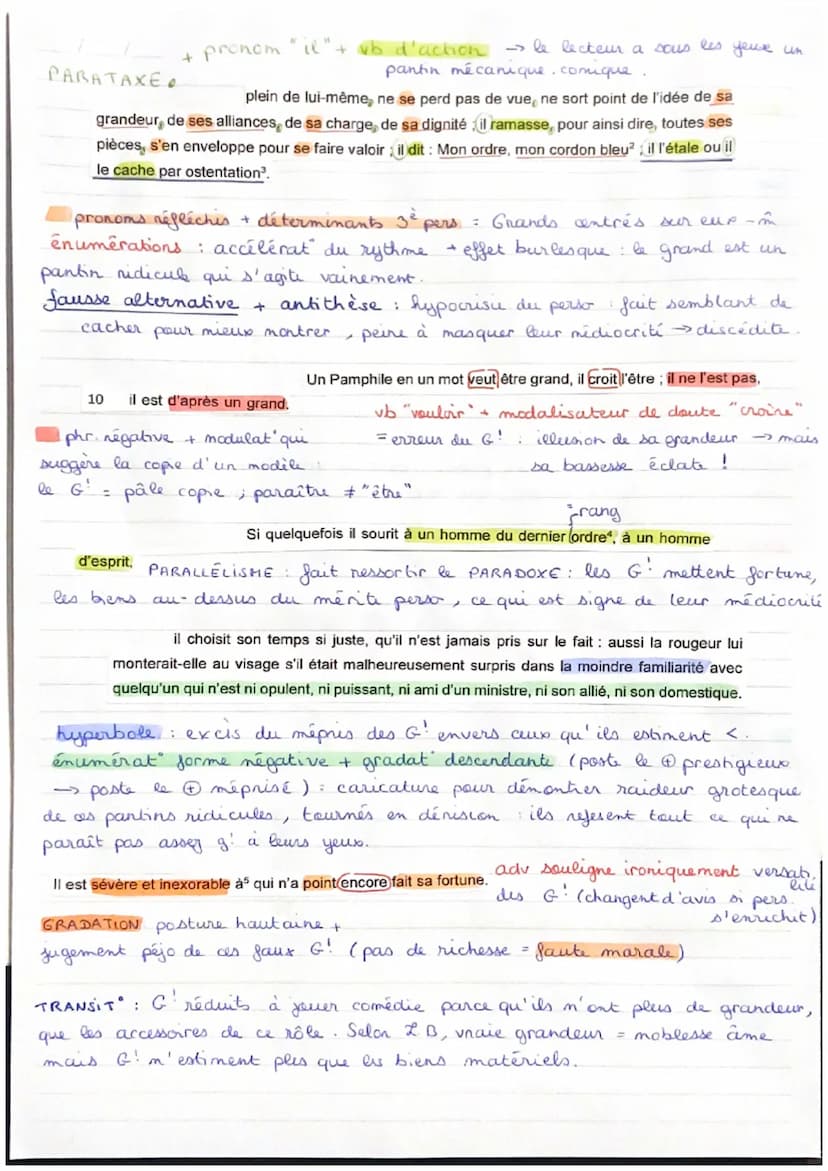 + pronom "il" + vb d'action → le lecteur a sous les yeux un
PARATAXE. pantin mécanique. comique.
plein de lui-même, ne se perd pas de vue, ne sort point de l'idée de sa
grandeur, de ses alliances, de sa charge, de sa dignité ; il ramasse, pour ainsi dire, toutes ses
pièces, s'en enveloppe pour se faire valoir ; il dit : Mon ordre, mon cordon bleu² ; il l'étale ou il
le cache par ostentation³.
pronoms réfléchis + déterminants 3è pers = Grands centrés sur eux-m̂
énumérations : accélérat° du rythme + effet burlesque : le grand est un
pantin ridicule qui s'agite vainement.
fausse alternative + antithèse : hypocrisie du perso : fait semblant de
cacher pour mieux montrer, peine à masquer leur médiocrité → discédite.
Un Pamphile en un mot veut être grand, il croit l'être ; il ne l'est pas,
10 il est d'après un grand.
vb "vouloir" + modalisateur de doute "croire"
phr. négative + modulat° qui = erreur du G! : illusion de sa grandeur → mais
suggère la copie d'un modèle : sa bassesse éclate !
le G! = pâle copie ; paraître ≠ "être"
= rang
Si quelquefois il sourit à un homme du dernier ordre⁴, à un homme
d'esprit,
PARALLÉLISME : fait ressortir le PARADOXE : les G! mettent fortune,
les biens au-dessus du mérite perso, ce qui est signe de leur médiocrité
il choisit son temps si juste, qu'il n'est jamais pris sur le fait : aussi la rougeur lui
monterait-elle au visage s'il était malheureusement surpris dans la moindre familiarité avec
quelqu'un qui n'est ni opulent, ni puissant, ni ami d'un ministre, ni son allié, ni son domestique.
hyperbole : excès du mépris des G! envers ceux qu'ils estiment <.
énumérat° forme négative + gradat° descendante (poste le ⊕ prestigieux
→ poste le ⊕ méprisé) : caricature pour démontrer raideur grotesque
de ces pantins ridicules, tournés en dérision : ils refesent tout ce qui ne
paraît pas assez g! à leurs yeux.
Il est sévère et inexorable à⁵ qui n'a point encore fait sa fortune.
adv souligne ironiquement versati
lité
des G! (changent d'avis si pers.
s'enrichit)
GRADATION posture hautaine +
jugement péjo de ces faux G! (pas de richesse = faute morale)
TRANSIT° : G! réduits à jouer comédie parce qu'ils n'ont plus de grandeur,
que les accessoires de ce rôle. Selon LB, vraie grandeur = noblesse âme
mais G! n'estiment plus que les biens matériels.